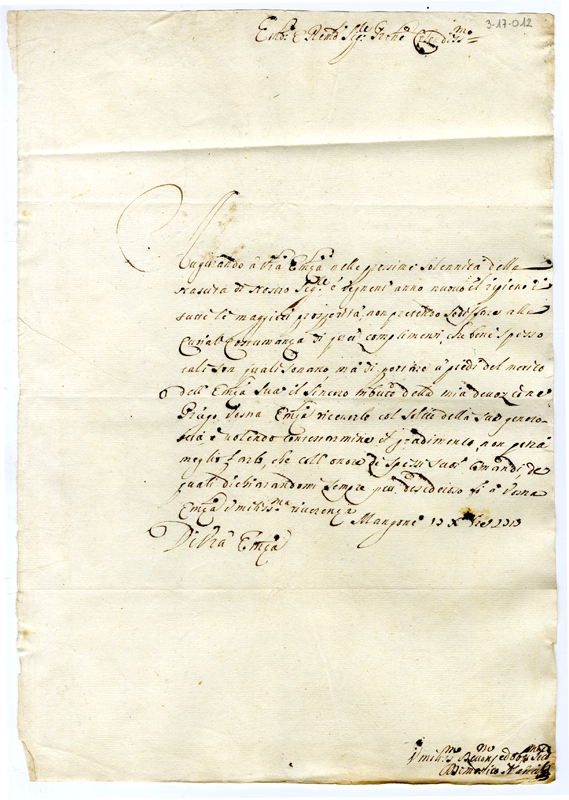 3-17-012
Em.o e Rend.o Sig.re
Augurando à V.ra Em.za nelle prossime solennità della
Nascita di Nostro Sig.re è vegnent' anno nuovo il ripieno di
tutte le maggiori prosperità, non pretendo sodisfare alla
consumanza di quei complimenti, che bene spesso
tali son quali sonano, mà di portare à piedi del merito
dell' Em.za Sua il sincero tributo della mia devozione
Priego Vostra Em.za riceverlo col solito della sua genero-
sità è volendo contestarmine il gradimento, non potrà
meglio farlo, che coll' onore di spessi suoi comandi, de
quali dichiarandomi sempre più desideroso fò à Vostra
Em.za umiliss.ma riverenza
Mangone 13 X.bre 1713
Di V.ra Em.za
Umiliss.mo